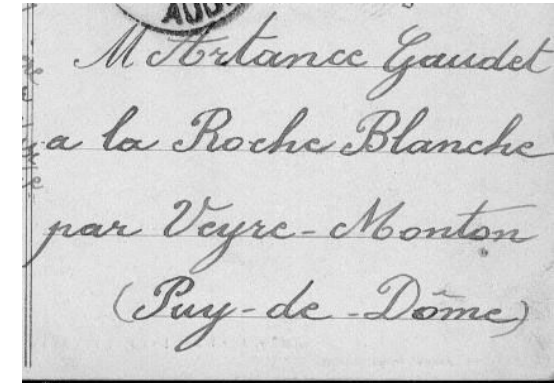 AOU
M Artance Gaudet
a la Roche Blanche
par Veyre-Monton
(Puy-de-Dôme)